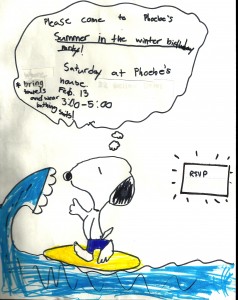 Please come to Phoebe's
Summer in the winter birthday
party!
Saturday at Phoebe's
house.
* bring
towels
and wear
bathing suits!
Feb. 13
3:00-5:00
RSVP